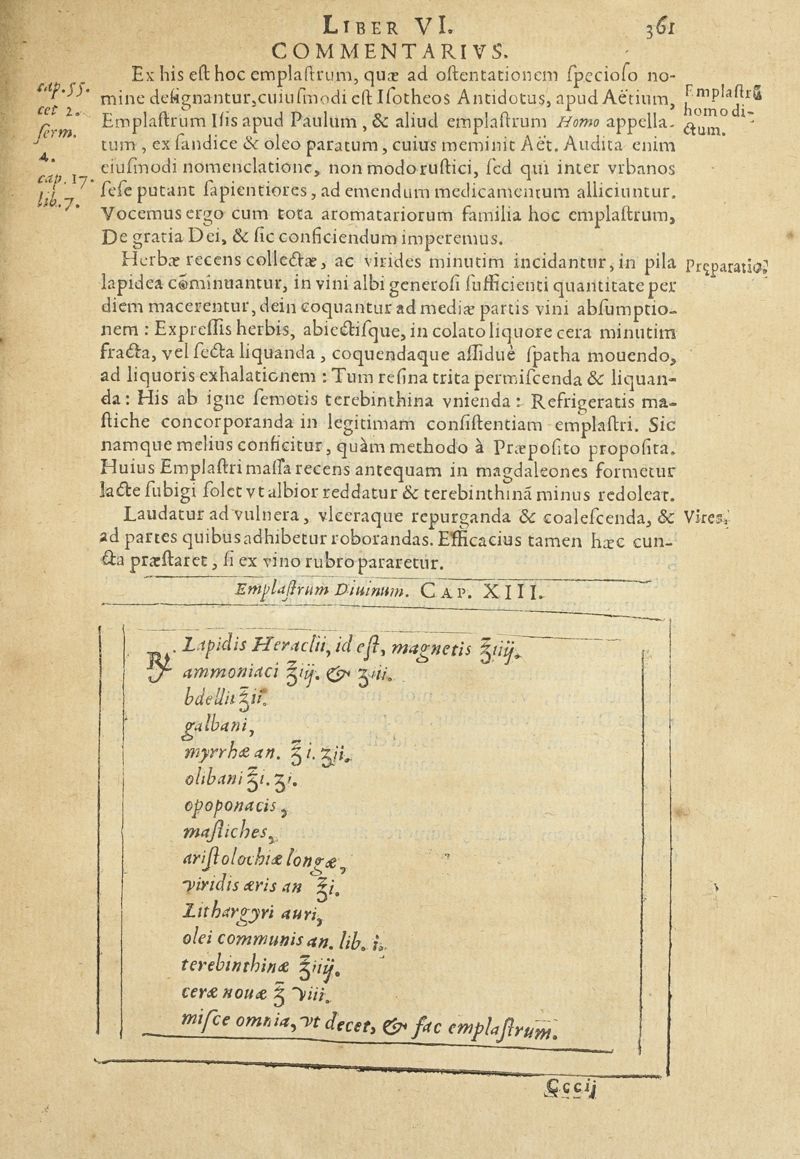 LIBER VI. 361
COMMENTARIVS.
Ex his eſt hoc emplaſtrum, quæ ad oſtentationem ſpecioſo no-
mine deſignantur, cuiuſmodi eſt Iſotheos Antidotus, apud Aëtium,
Emplaſtrum Iſis apud Paulum, & aliud emplaſtrum Homo appella-
tum, ex ſandice & oleo paratum, cuius meminit Aët. Audita enim
eiuſmodi nomenclatione, non modo ruſtici, ſed qui inter vrbanos
ſeſe putant ſapientiores, ad emendum medicamentum alliciuntur.
Vocemus ergo cum tota aromatariorum familia hoc emplaſtrum,
De gratia Dei, & ſic conficiendum imperemus.
cap. 55.
cet 2.
ſerm.
4.
cap. 17.
lib. 7.
Emplaſtrũ
homo di-
ctum.
Herbæ recens collectæ, ac virides minutim incidantur, in pila
lapidea cõminuantur, in vini albi generoſi ſufficienti quantitate per
diem macerentur, dein coquantur ad mediæ partis vini abſumptio-
nem: Expreſſis herbis, abiectiſque, in colato liquore cera minutim
fracta, vel ſecta liquanda, coquendaque aſſiduè ſpatha mouendo,
ad liquoris exhalationem: Tum reſina trita permiſcenda & liquan-
da: His ab igne ſemotis terebinthina vnienda: Refrigeratis ma-
ſtiche concorporanda in legitimam conſiſtentiam emplaſtri. Sic
namque melius conficitur, quàm methodo à Præpoſito propoſita.
Huius Emplaſtri maſſa recens antequam in magdaleones formetur
lacte ſubigi ſolet vt albior reddatur & terebinthinã minus redoleat.
Præparatio.
Laudatur ad vulnera, vlceraque repurganda & coaleſcenda, &
ad partes quibus adhibetur roborandas. Efficacius tamen hæc cun-
cta præſtaret, ſi ex vino rubro pararetur.
Vires.
Emplaſtrum Diuinum. CAP. XIII.
℞. Lapidis Heraclii, id eſt, magnetis ℥iiij.
ammoniaci ℥iij. & ʒiii.
bdellii ℥ii.
galbani,
myrrhæ an. ℥i. ʒii.
olibani ℥i. ʒi.
opoponacis,
maſtiches,
ariſtolochiæ longæ,
viridis æris an ℥i.
Lithargyri auri,
olei communis an. lib. i.
terebinthinæ ℥iiij.
ceræ nouæ ℥ viii.
miſce omnia, vt decet, & fac emplaſtrum.
Cccij